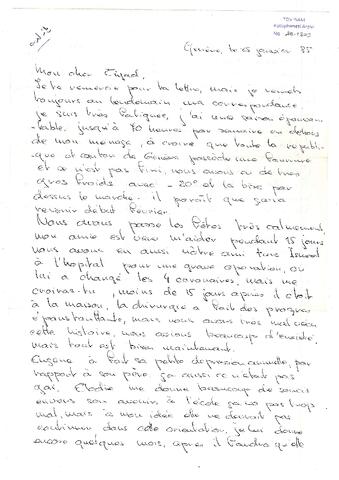 TDV İSAM
Kütüphanesi Arşivi
No
Genève, le 25 janvier 85
Mon cher Turgut.
Je te remercie pour ta lettre, mais je remets
toujours au lendemain ma correspondance.
je suis très fatiguée, j'ai une saison épouvan-
table, jusqu'à 70 heures par semaine en dehors
de mon menage, à croire que toute la republi-
que et canton de Genève possède une fourrure
et ce n'est pas fini, nous avons eu de très
gros froids avec -20° et la bise par
dessus le marché. il paraît que ça va
revenir début fevrier.
Nous avons passé les fêtes très calmement,
mon amie est venu m'aider pendant 15 jours
nous avons eu aussi nôtre ami turc
à l'hopital pour une grave operation, on
lui a changé les 4 coronaires, mais me
croiras-tu, moins de 15 jours apres il était
à la maison, la chirurgie a fait des progrès
époustouflants, mais nous avons très mal vécu
cette histoire, nous avions beaucoup d'anxieté,
mais tout est bien maintenant.
Eugène à fait sa petite depression annuelle, par
rapport à son père, ça aussi ce n'était pas
gai. Elodie me donne beaucoup de soucis
envers son avenir à l'école ça va pas trop
mal, mais à mon idée elle ne devrait pas
continuer dans cette orientation, je lui donne
encore quelques mois, apres il faudra qu'elle